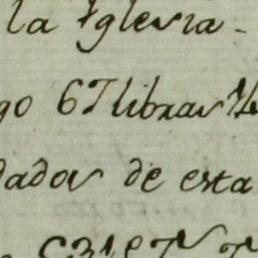 la Yglesia
go 67 libras ½
dados de esta